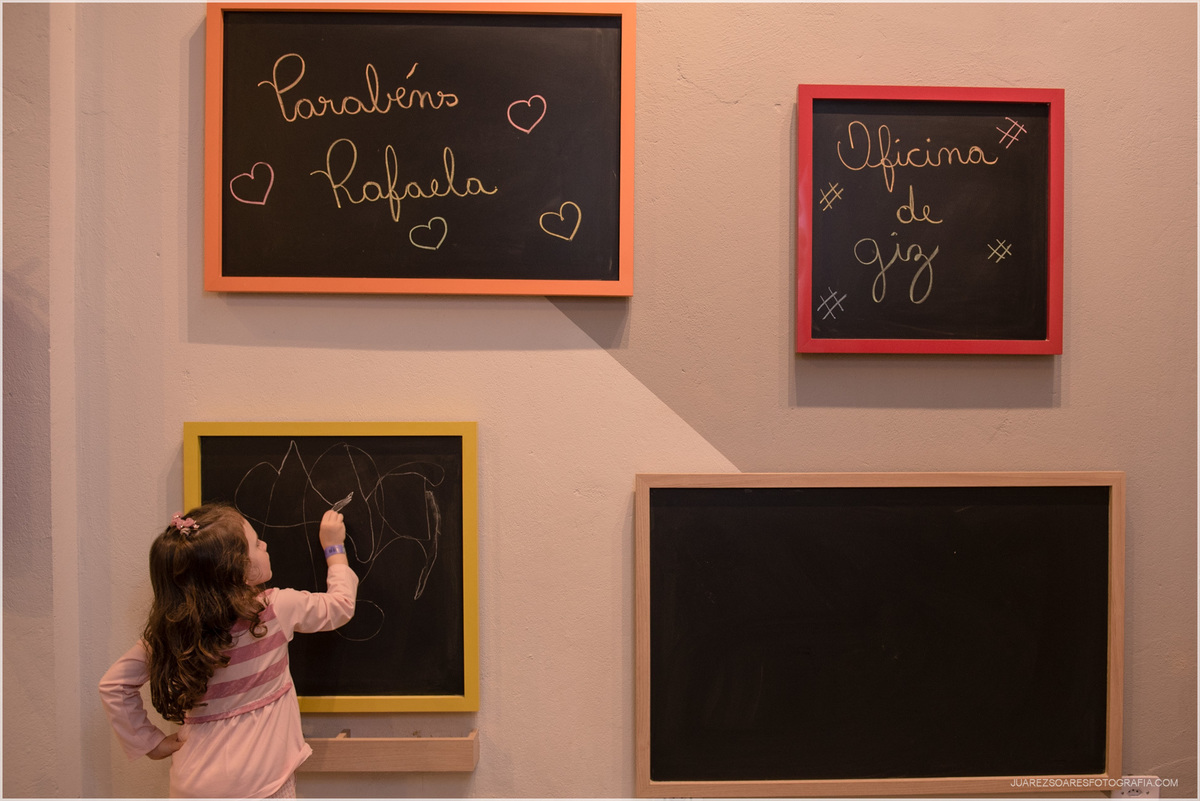 Parabéns
Rafaela
Oficina
de
giz
JUAREZSOARESFOTOGRAFIA.COM